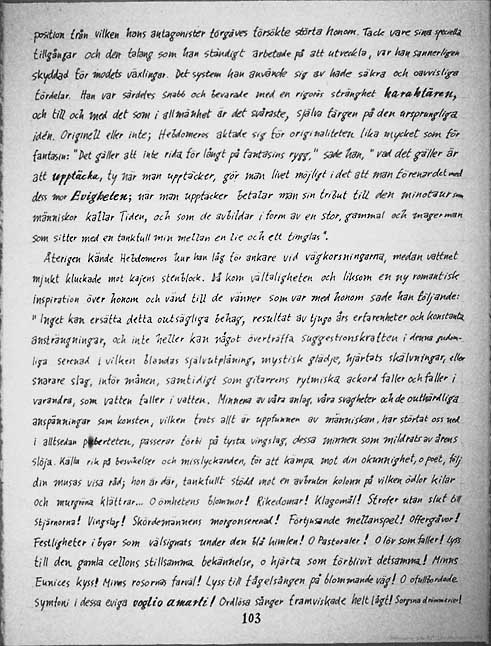 position från vilken hans antagonister förgäves försökte störta honom. Tack vare sina speciella
tillgångar och den talang som han ständigt arbetade på att utveckla, var han sannerligen
skyddad för modets växlingar. Det system han använde sig av hade säkra och oavvisliga
fördelar. Han var särdeles snabb och bevarade med en rigorös stränghet karaktären,
och till och med det som i allmänhet är det svåraste, själva färgen på den ursprungliga
idén. Originell eller inte; Hebdomeros aktade sig för originaliteten lika mycket som för
fantasin: "Det gäller att inte rida för långt på fantasins rygg," sade han, "vad det gäller är
att upptäcka, ty när man upptäcker, gör man livet möjligt i det att man förenar det med
dess mor Evigheten; när man upptäcker betalar man sin tribut till den minotaur som
människor kallar Tiden, och som de avbildar i form av en stor, gammal och mager man
som sitter med en tankfull min mellan en lie och ett timglas".
Återigen kände Hebdomeros hur han låg för ankare vid vägkorsningarna, medan vattnet
mjukt kluckade mot kajens stenblock. Då kom vältaligheten och liksom en ny romantisk
inspiration över honom och vänd till de vänner som var med honom sade han följande:
"Inget kan ersätta detta outsägliga behag, resultat av tjugo års erfarenheter och konstanta
ansträngningar, och inte heller kan något överträffa suggestionskraften i denna gudom-
liga serenad i vilken blandas självutplåning, mystisk glädje, hjärtats skälvningar, eller
snarare slag, inför månen, samtidigt som gitarrens rytmiska ackord faller och faller i
varandra, som vatten faller i vatten. Minnena av våra anlag, våra svagheter och de outhärdliga
anspänningar som konsten, vilken trots allt är uppfunnen av människan, har störtat oss ned
i alltsedan puberteten, passerar förbi på tysta vingslag, dessa minnen som mildrats av årens
slöja. Källa rik på besvikelser och misslyckanden, för att kämpa mot din okunnighet, o poet, följ
din musas visa råd; hon är där, tankfullt stödd mot en avbruten kolonn på vilken ödlor kilar
och murgröna klättrar... O ömhetens blommor! Rikedomar! Klagomål! Strofer utan slut till
Stjärnorna! Vingslag! Skördemännens morgonserenad! Förtjusande mellanspel! Offergåvor!
Festligheter i byar som välsignats under den blå himlen! O Pastoraler! O löv som faller! Lyss
till den gamla cellons stillsamma bekännelse, o hjärta som förblivit detsamma! Minns
Eunices kyss! Minns rosornas farväl! Lyss till fågelsången på blommande väg! O ofullbordade
Symfoni i dessa eviga voglio amarti! Ordlösa sånger framviskade helt lågt! Sorgsna drömmerier!
103